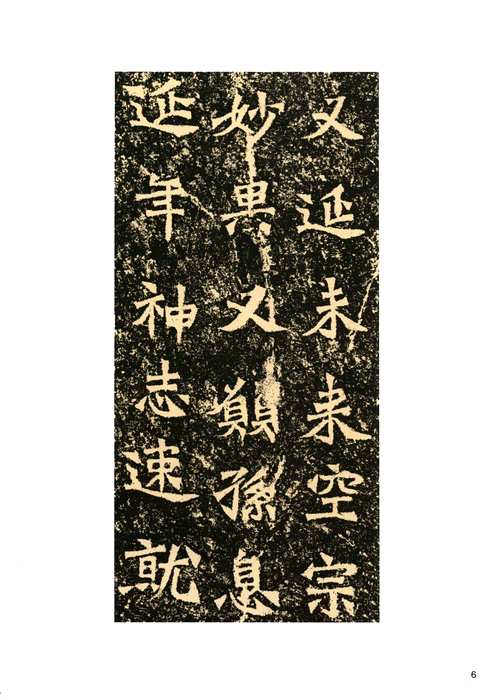 又延未来空宗
妙果又願孫息
延年神志速就
6